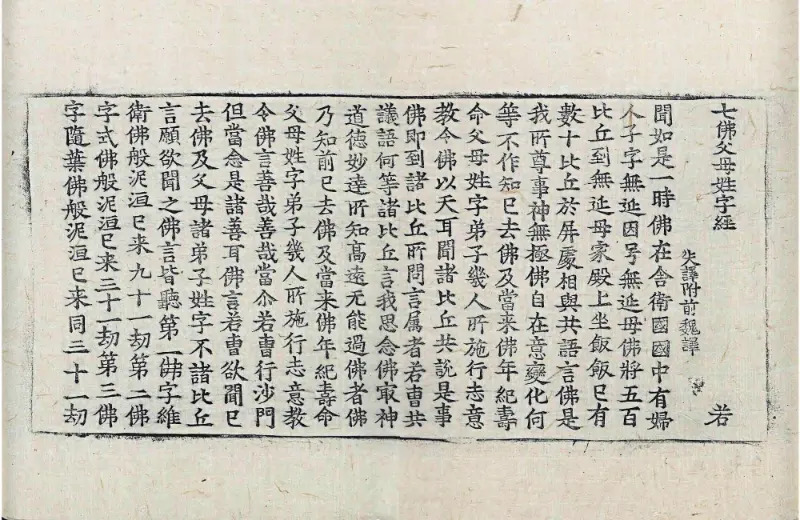 七佛父母姓字経
失譯附前魏譯
若
聞如是一時佛在舍衛國國中有婦
人子字無延因号無延母佛將五百
比丘到無延母家殿上坐飯飯巳有
數十比丘於屏處相與共語言佛是
我所尊事神無極佛自在意變化何
等不作知巳去佛及當来佛年紀壽
命父母姓字弟子幾人所施行志意
教令佛以天耳聞諸比丘共說是事
佛即到諸比丘所問言属者若曹共
議語何等諸比丘言我思念佛㝡神
道徳妙達所知高遠无能過佛者佛
乃知前巳去佛及當来佛年紀壽命
父母姓字弟子幾人所施行志意教
令佛言善哉善哉當尒若曹行沙門
但當念是諸善耳佛言若曹欲聞巳
去佛及父母諸弟子姓字不諸比丘
言願欲聞之佛言皆聽第一佛字維
衛佛般泥洹巳来九十一劫第二佛
字式佛般泥洹巳来三十一劫第三佛
字隨葉佛般泥洹巳来同三十一劫